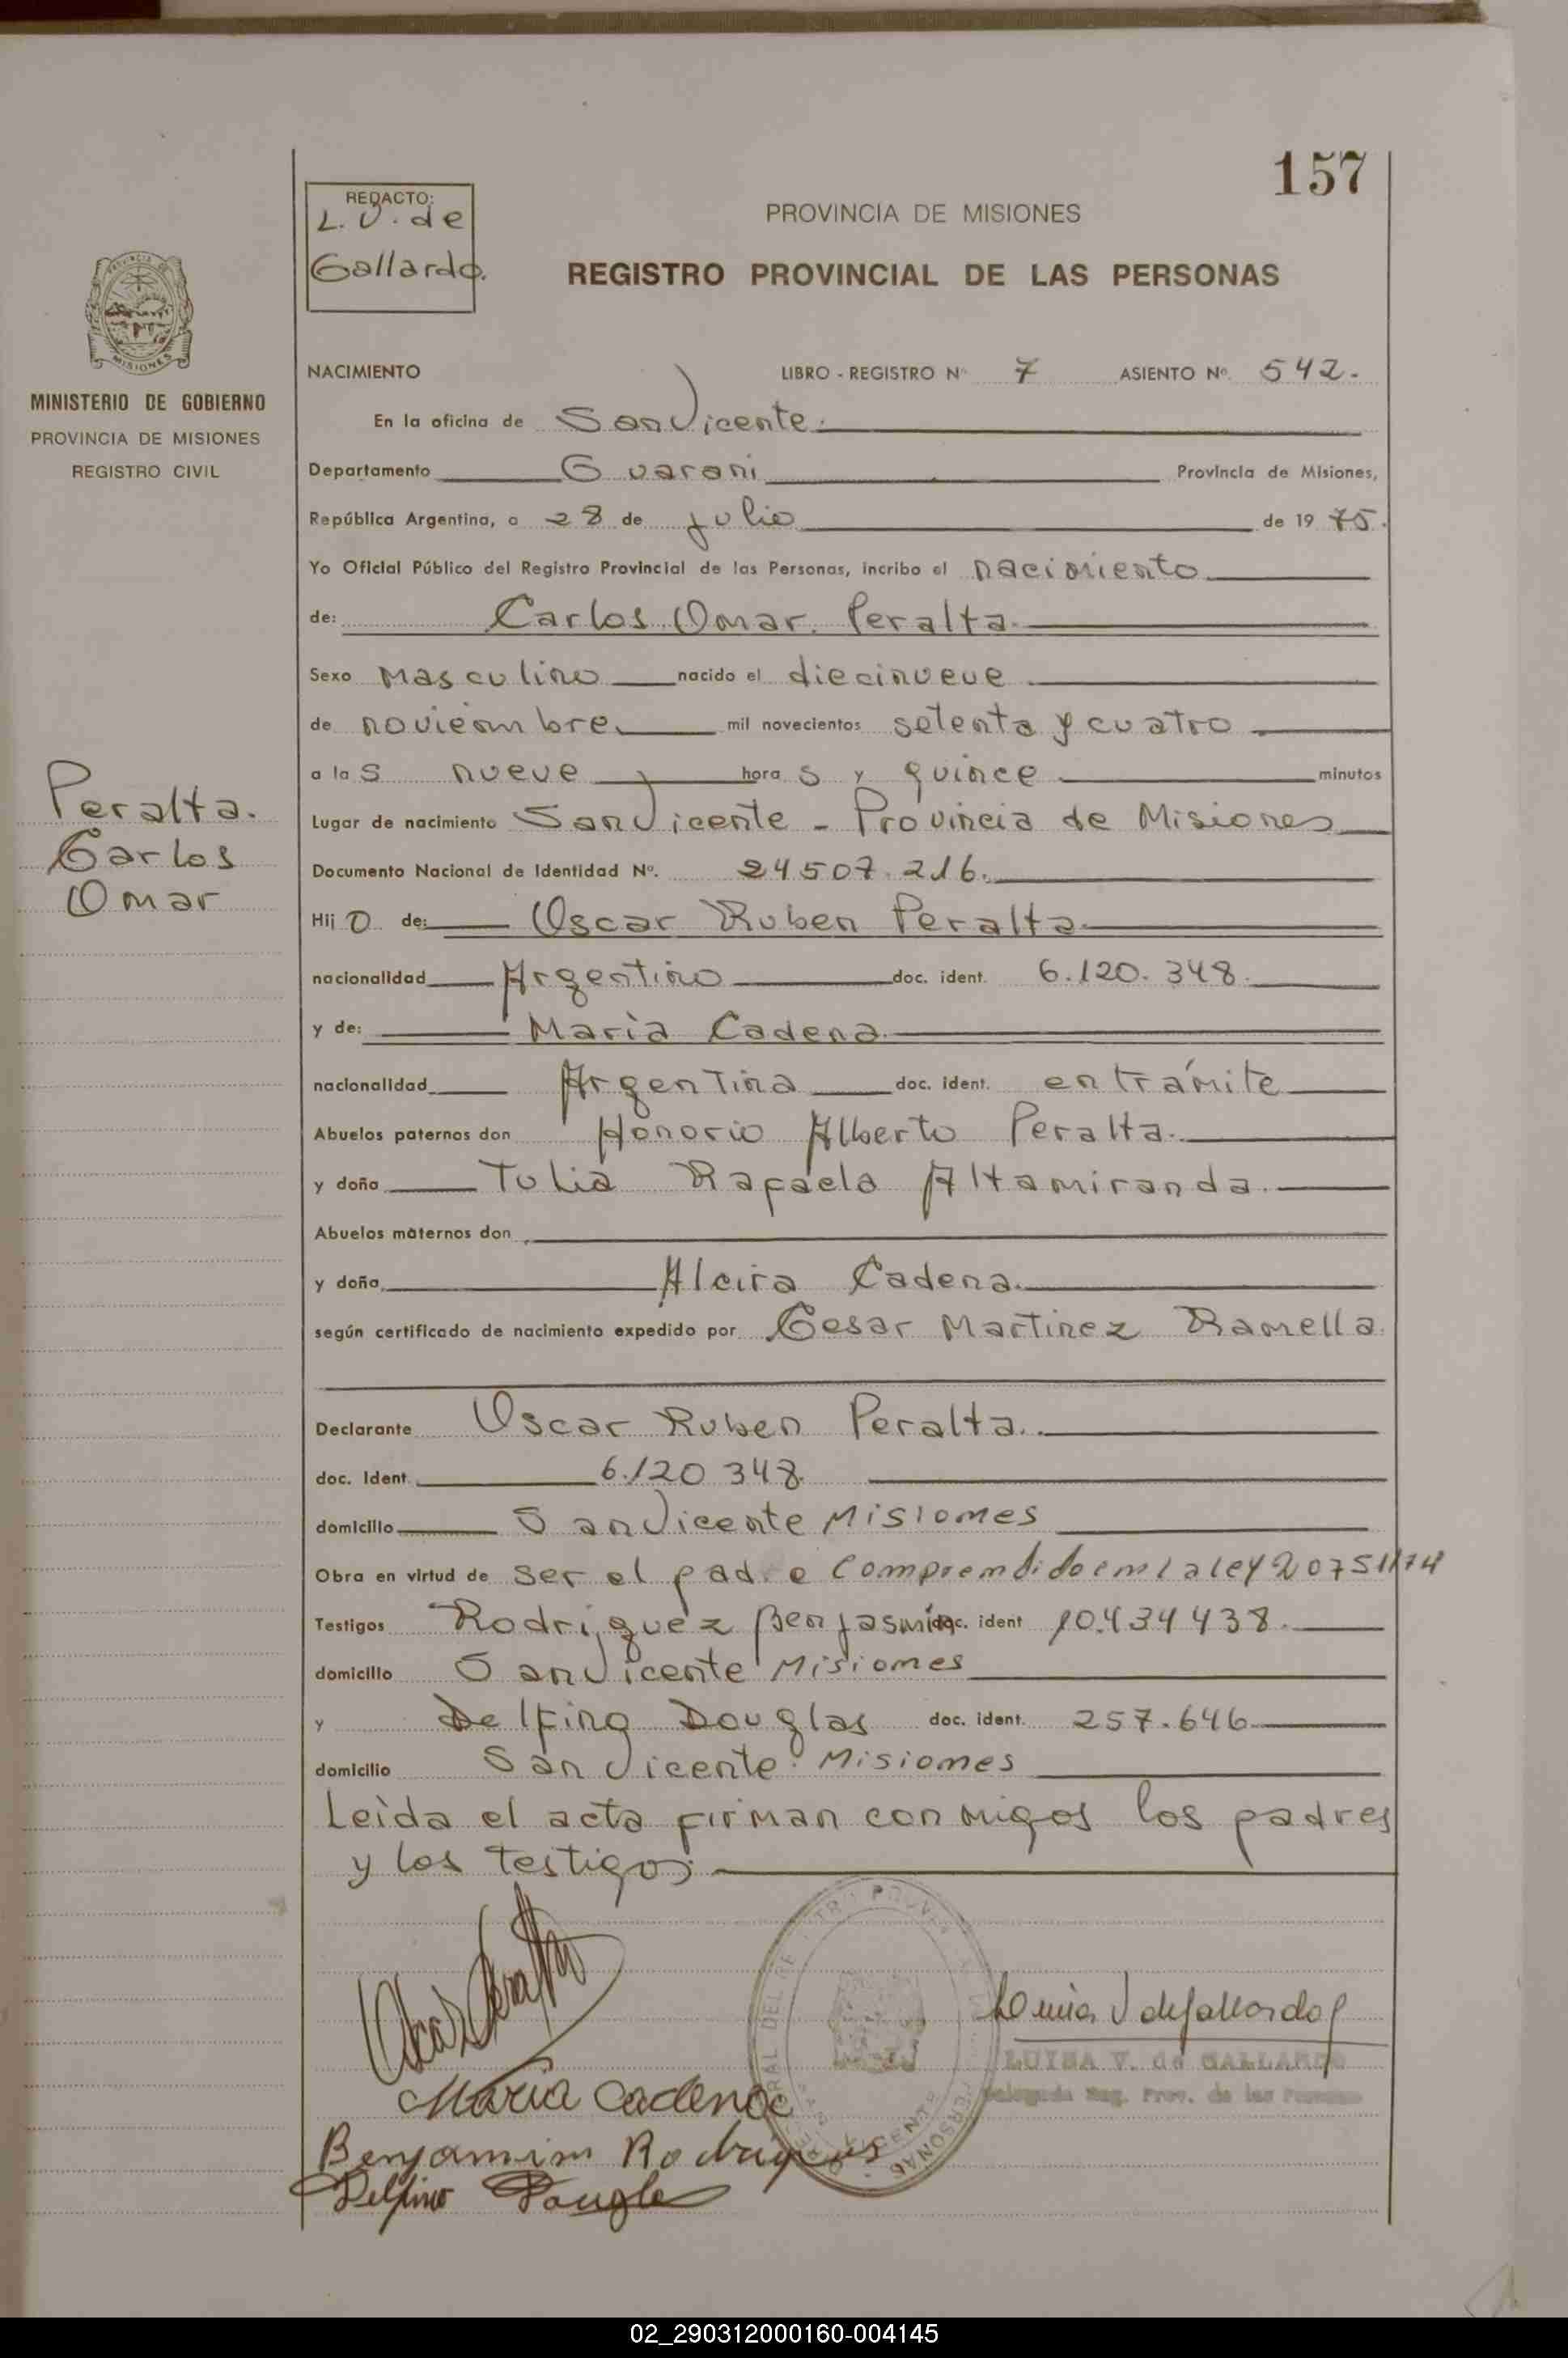 157
REDACTO:
L. V. de
Gallardo.
PROVINCIA DE MISIONES
REGISTRO PROVINCIAL DE LAS PERSONAS
MISIONES
MINISTERIO DE GOBIERNO
PROVINCIA DE MISIONES
REGISTRO CIVIL
NACIMIENTO LIBRO - REGISTRO Nº 7 ASIENTO Nº 542.
En la oficina de San Vicente.
Departamento Guarani Provincia de Misiones,
República Argentina, a 28 de julio de 19 75.
Yo Oficial Público del Registro Provincial de las Personas, incribo el nacimiento
de: Carlos Omar Peralta
Sexo Masculino nacido el diecinueve
de noviembre mil novecientos setenta y cuatro
a las nueve horas y quince minutos
Peralta.
Carlos
Omar
Lugar de nacimiento San Vicente - Provincia de Misiones
Documento Nacional de Identidad Nº. 24507.216.
Hijo de: Oscar Ruben Peralta
nacionalidad Argentino doc. ident. 6.120.348.
y de: Maria Cadena
nacionalidad Argentina doc. ident. en trámite
Abuelos paternos don Honorio Alberto Peralta.
y doña Tulia Rafaela Altamiranda.
Abuelos maternos don
y doña Alcira Cadena.
según certificado de nacimiento expedido por Cesar Martinez Ramella
Declarante Oscar Ruben Peralta.
doc. Ident. 6.120 348.
domicilio San Vicente Misiones
Obra en virtud de ser el padre comprendido en la ley 20751/74
Testigos Rodriguez Benjasmin doc. ident 10.434438.
domicilio San Vicente Misiones
y Delfino Douglas doc. ident. 257.646
domicilio San Vicente Misiones
Leida el acta firman con migos los padres
y los testigos.
Oscar Peralta
Luisa V de Gallardo
LUISA V. de GALLARDO
Delegada Reg. Prov. de las Personas
Maria Cadena
Benjamin Rodrigues
Delfino Dougla
02_290312000160-004145